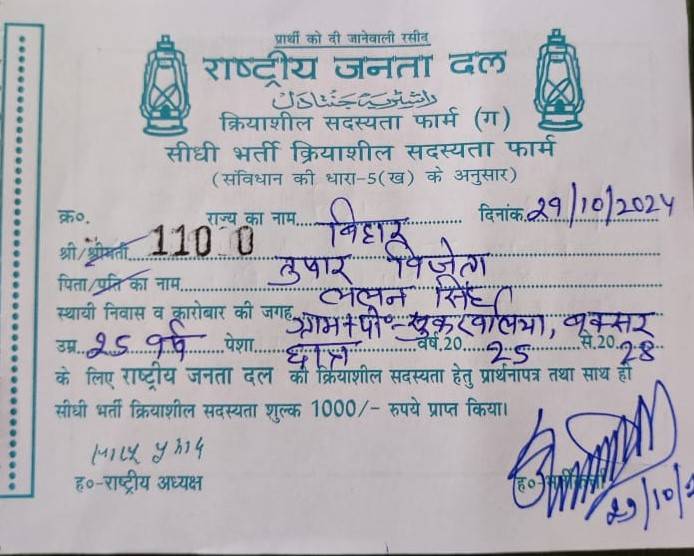 प्रार्थी को दी जानेवाली रसीद
राष्ट्रीय जनता दल
راشٹریہ جنتا دل
क्रियाशील सदस्यता फार्म (ग)
सीधी भर्ती क्रियाशील सदस्यता फार्म
(संविधान की धारा-5(ख) के अनुसार)
क्र०. राज्य का नाम बिहार दिनांक 29/10/2024
110 0
श्री/श्रीमती तुषार विजेता
पिता/पति का नाम ललन सिंह
स्थायी निवास व कारोबार की जगह ग्राम+पो०- बक्सर
उम्र 25 वर्ष पेशा छात्र वर्ष.20 25 से.20 28
के लिए राष्ट्रीय जनता दल की क्रियाशील सदस्यता हेतु प्रार्थनापत्र तथा साथ ही
सीधी भर्ती क्रियाशील सदस्यता शुल्क 1000/- रुपये प्राप्त किया।
ह०-राष्ट्रीय अध्यक्ष
ह०-
29/10/2